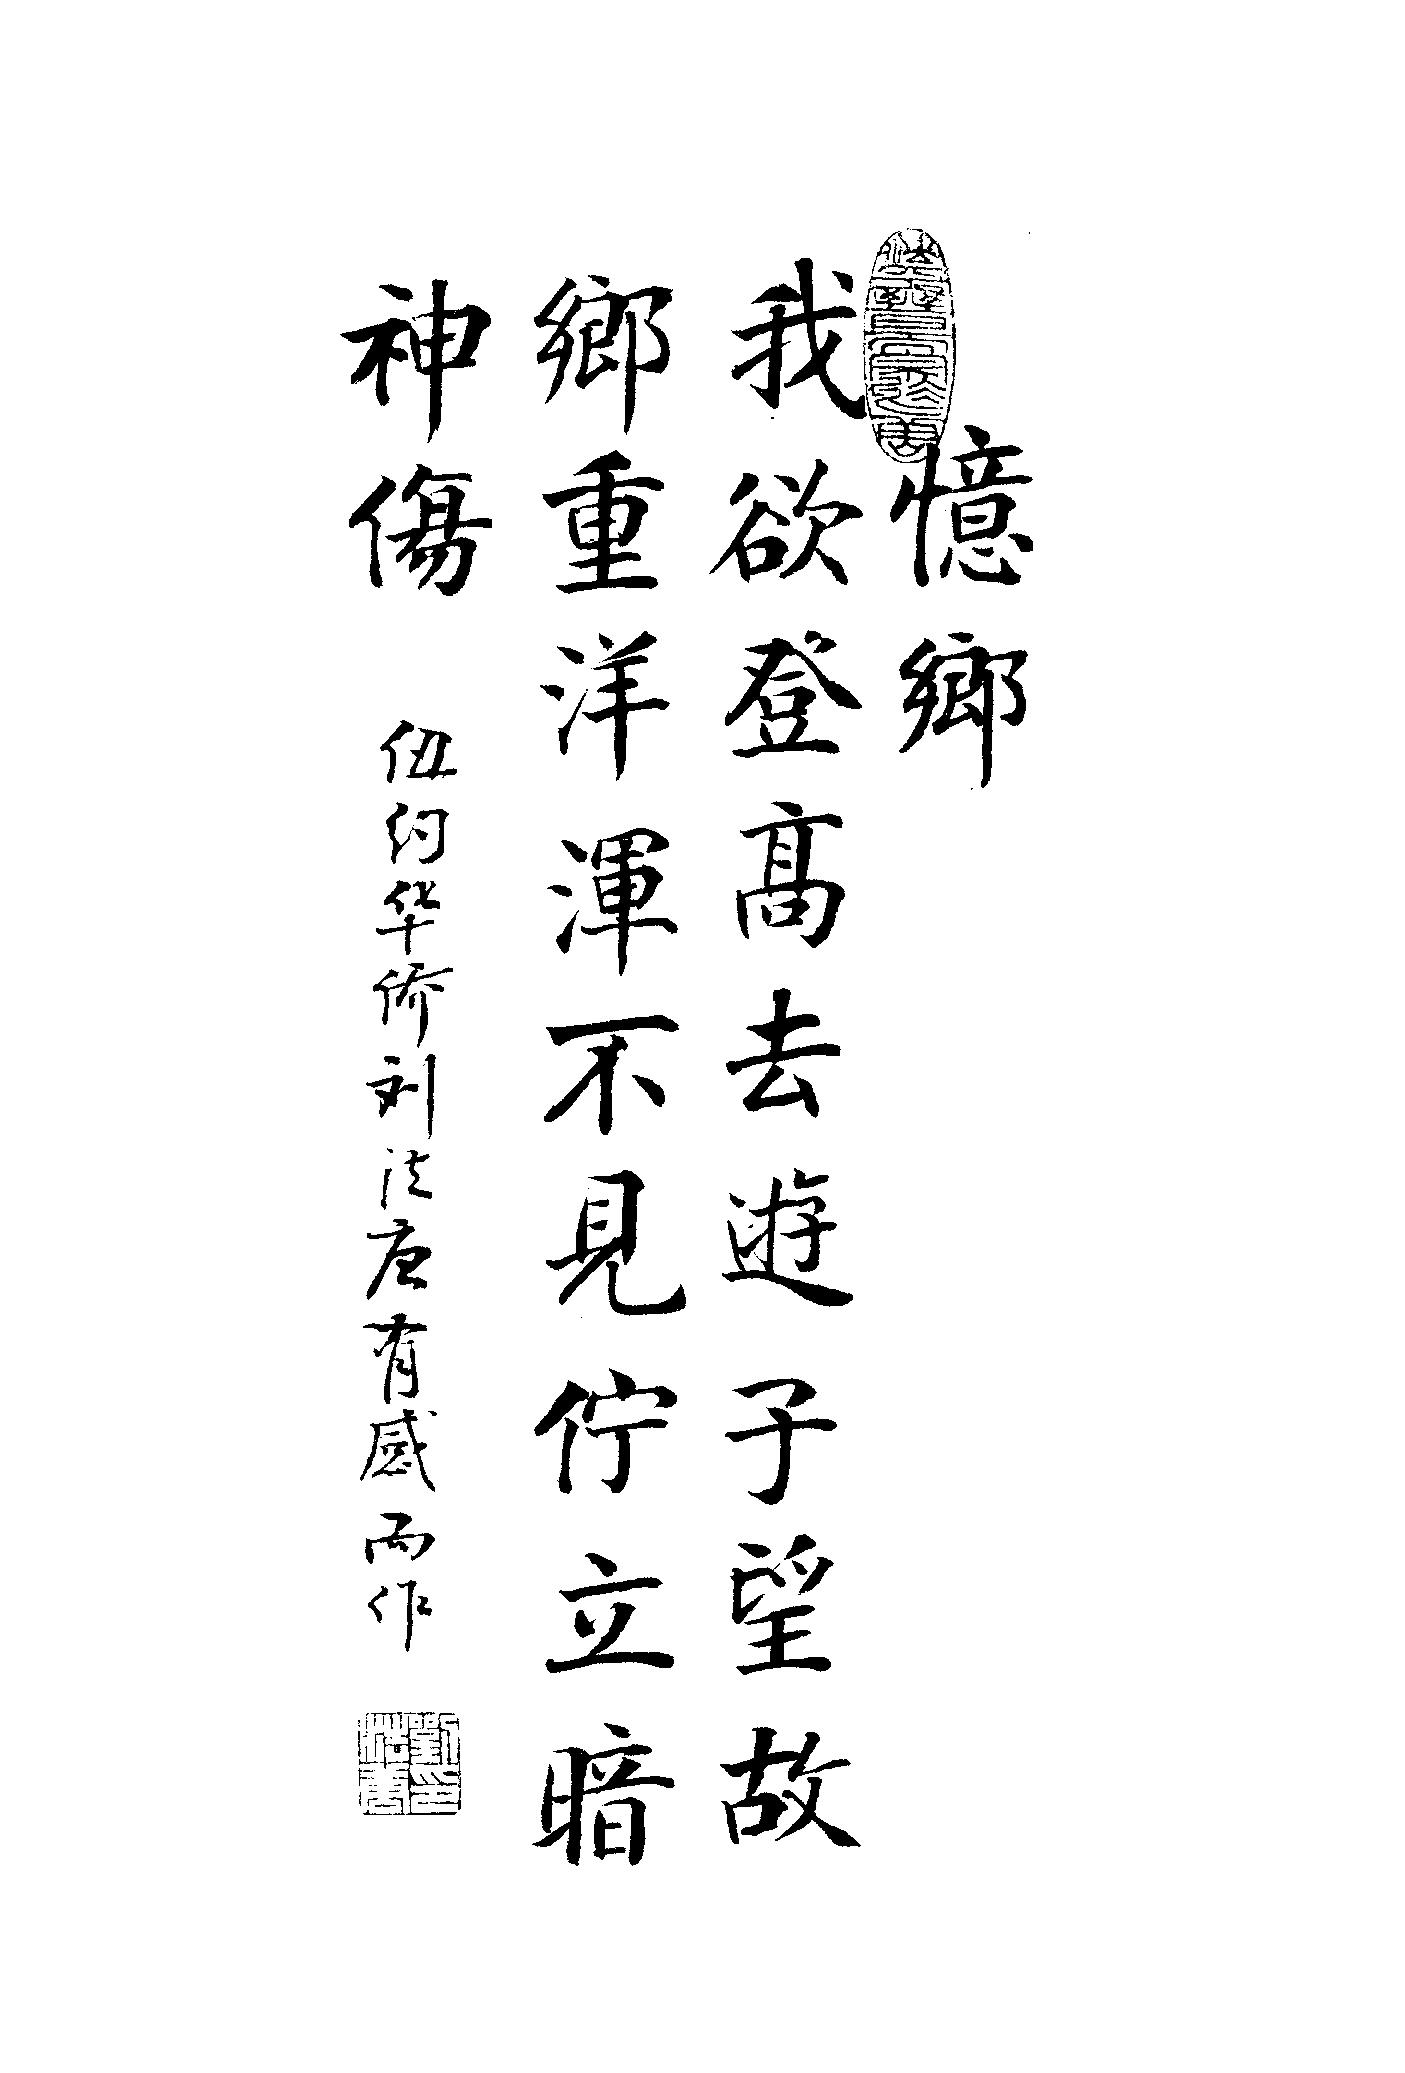 憶鄉
我欲登高去遊子望故
鄉重洋渾不見佇立暗
神傷
伍约华侨刘法唐有感而作